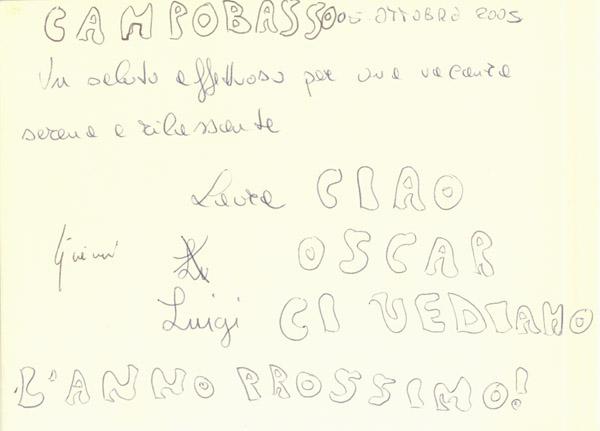 CAMPOBASSO 05 OTTOBRE 2005
Un saluto affettuoso per una vacanza
serena e rilassante
Laura CIAO
Gianni OSCAR
Luigi CI VEDIAMO
L'ANNO PROSSIMO!